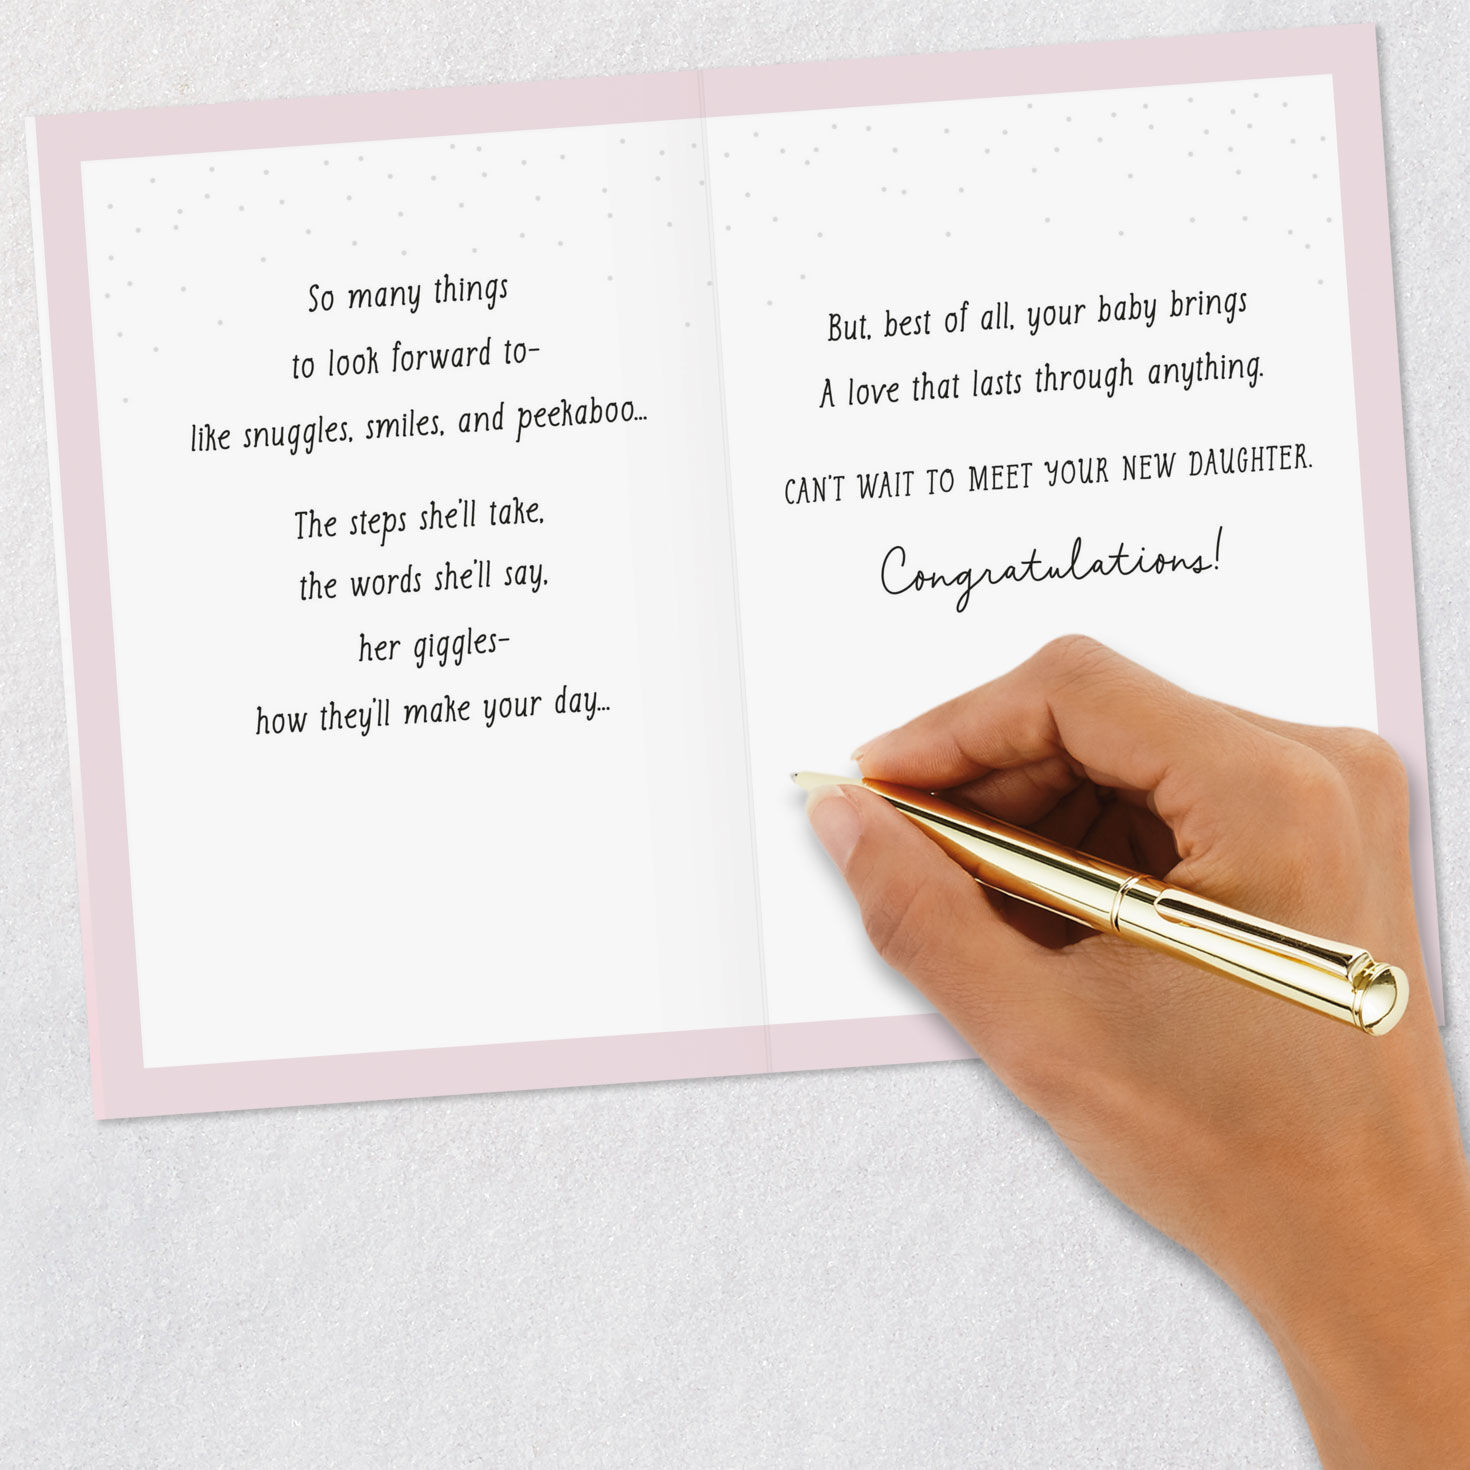 So many things
to look forward to-
like snuggles, smiles, and peekaboo...
The steps she'll take,
the words she'll say,
her giggles-
how they'll make your day...
But, best of all, your baby brings
A love that lasts through anything.
CAN'T WAIT TO MEET YOUR NEW DAUGHTER.
Congratulations!